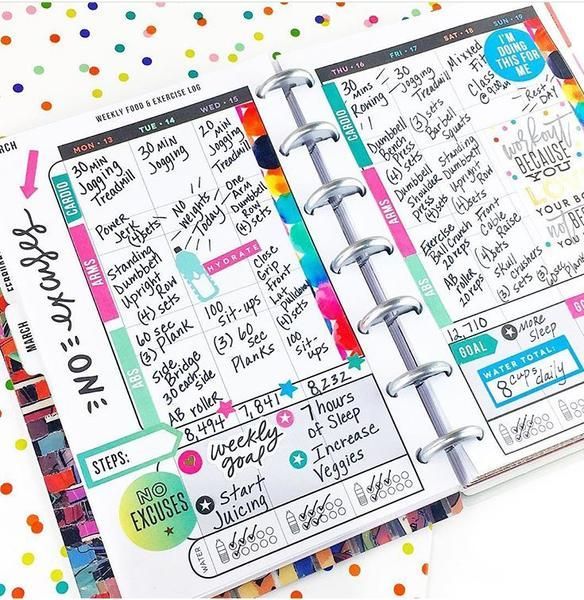 WEEKLY FOOD & EXERCISE LOG
MARCH
NO excuses
MON • 13
TUE • 14
WED • 15
CARDIO
30 MIN
Jogging
Treadmill
30 MIN
Jogging
20 MIN
Jogging
Treadmill
ARMS
Power
Jerk
(4) sets
Standing
Dumbbell
Upright
Row
(4) sets
NO
weights
Today
HYDRATE
One
Arm
Dumbbell
Row
(4) sets
Close
Grip
Lat
Front
Pulldown
(4) sets
ABS
60 sec
(3) Plank
Side
Bridge
30 each
Side
AB roller
100
Sit-ups
(3) 60
sec
Planks
100
Sit-ups
STEPS:
8,494
7,841
8,232
NO
EXCUSES
weekly
goal
Start
Juicing
7 hours
of Sleep
Increase
Veggies
WATER
THU • 16
FRI • 17
SAT • 18
SUN • 19
CARDIO
30
mins
Rowing
30
Jogging
Treadmill
Mixxed
Fit
Class
I'M
DOING
THIS FOR
ME
Rest
DAY
ARMS
Dumbbell
Bench
Press
(3) sets
Dumbbell
Shoulder
Press
(3) sets
(3) sets
Barbell
Squats
Standing
Dumbbell
Upright
Row
(4) sets
workout
BECAUSE
YOU
LOVE
YOUR BODY
ABS
Exercise
Ball Crunch
20 reps
AB
Roller
10 reps
Front
Cable
Raise
(4) sets
Skull
crushers
(3) sets
12,710
GOAL
More
Sleep
WATER TOTAL:
8 cups daily